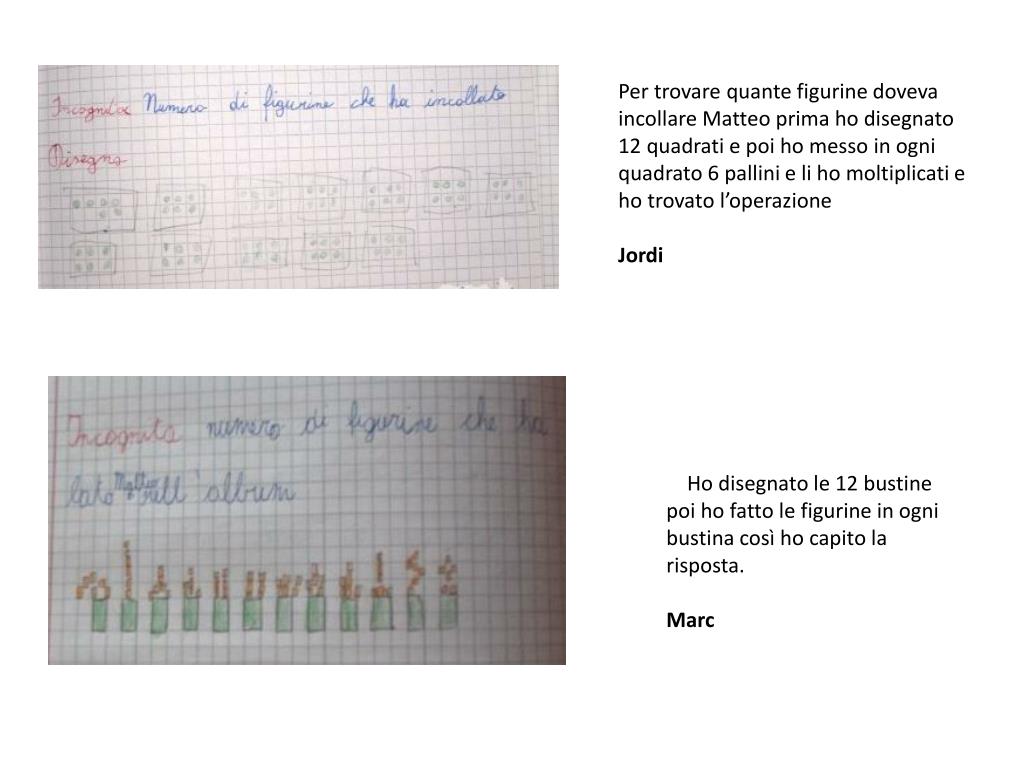 Incognita Numero di figurine che ha incollato
Disegno
Per trovare quante figurine doveva
incollare Matteo prima ho disegnato
12 quadrati e poi ho messo in ogni
quadrato 6 pallini e li ho moltiplicati e
ho trovato l’operazione
Jordi
Incognita numero di figurine che ha
lato Matteo sull'album
Ho disegnato le 12 bustine
poi ho fatto le figurine in ogni
bustina così ho capito la
risposta.
Marc